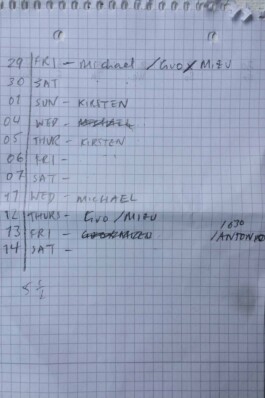 29 FRI - Michael / Guo / MIZU
30 SAT " "
01 SUN - KIRSTEN
04 WED - MICHAEL
05 THUR - KIRSTON
06 FRI -
07 SAT -
11 WED - MICHAEL
12 THUR - GUO / MIZU
1630
13 FRI - /ANTON
14 SAT -